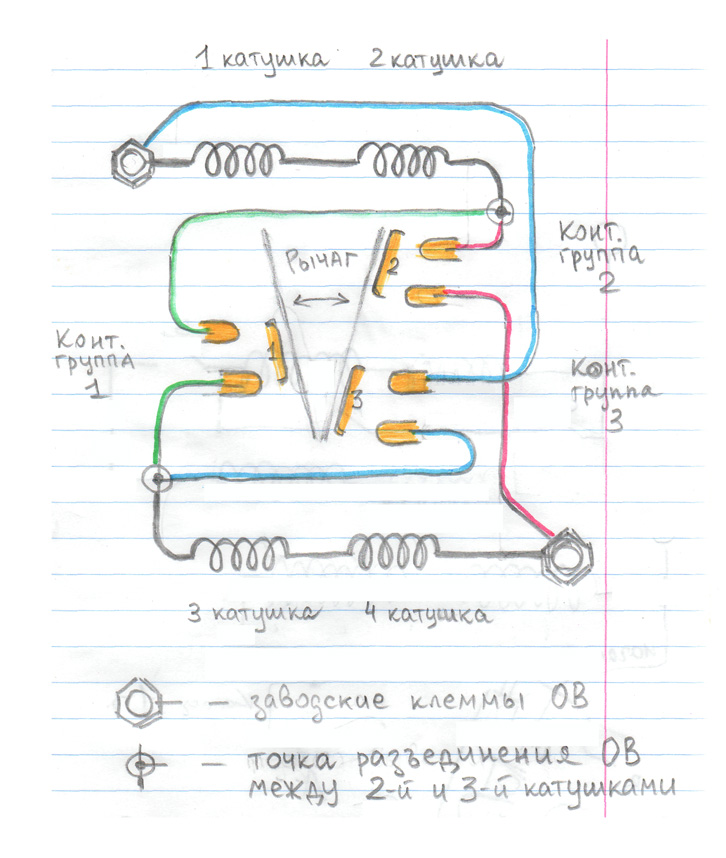 1 катушка 2 катушка
Рычаг
2
Конт.
группа
2
1
Конт.
группа
1
3
Конт.
группа
3
3 катушка 4 катушка
— заводские клеммы ОВ
— точка разъединения ОВ
между 2-й и 3-й катушками